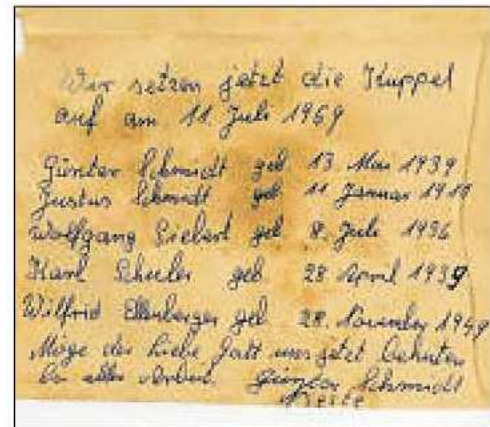 Wir setzen jetzt die Kuppel
auf am 11. Juli 1969
Günter Schmidt geb 13 Mai 1939
Justus Schmidt geb 11 Januar 1919
Wolfgang Siebert geb 8. Juli 1936
Karl Schuler geb 28 April 1939
Wilfrid Ellenberger geb 28. November 1949
Möge der liebe Gott uns jetzt behüten
bei aller Arbeit. Günter Schmidt